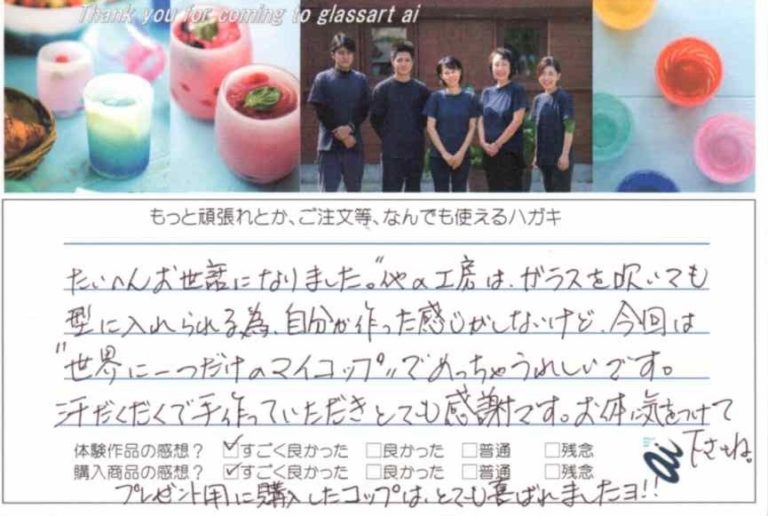 Thank you for coming to glassart ai
もっと頑張れとか、ご注文等、なんでも使えるハガキ
たいへんお世話になりました。"他の工房は、ガラスを吹いても
型に入れられる為、自分が作った感じがしないけど、今回は
"世界に一つだけのマイコップ"でめっちゃうれしいです。
汗だくだくで手作っていただきとても感謝です。お体に気をつけて
下さいね。
体験作品の感想? ☑すごく良かった □良かった □普通 □残念
購入商品の感想? ☑すごく良かった □良かった □普通 □残念
ai
プレゼント用に購入したコップは、とても喜ばれましたヨ!!